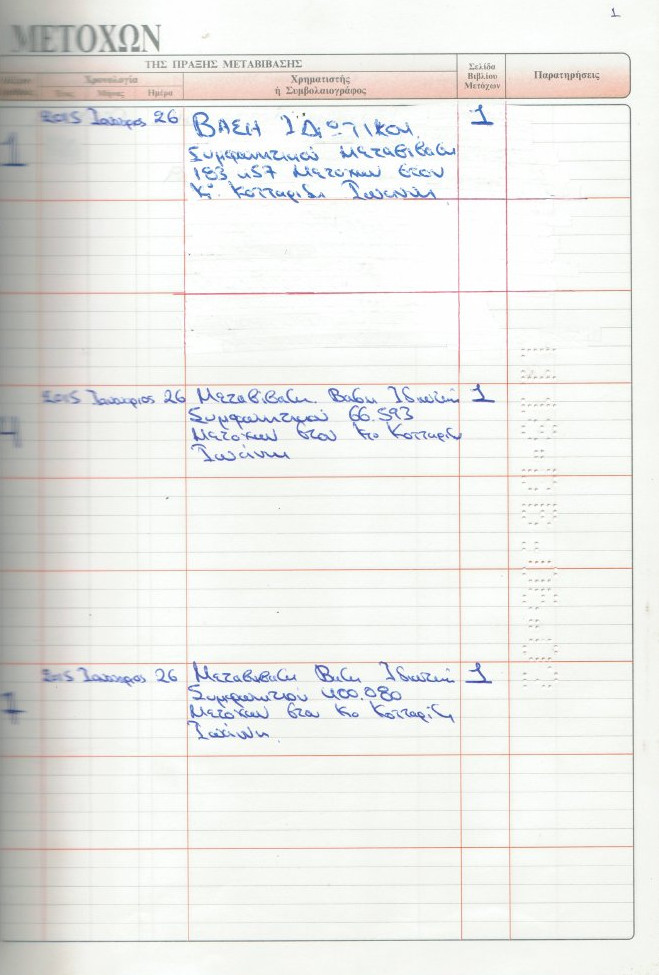 1
ΜΕΤΟΧΩΝ
ΤΗΣ ΠΡΑΞΗΣ ΜΕΤΑΒΙΒΑΣΗΣ
Χρονολογία
Έτος Μήνας Ημέρα
Χρηματιστής
ή Συμβολαιογράφος
Σελίδα
Βιβλίου
Μετόχων
Παρατηρήσεις
1 2015 Ιανουαριος 26 ΒΑΣΗ ΙΔΙΩΤΙΚΟΥ 1
Συμφωνητικού Μεταβιβαση
183.457 Μετοχων στον
Κο. Κοτταριδη Ιωαννη
4 2015 Ιανουαριος 26 Μεταβιβαση Βαση Ιδιωτικ 1
Συμφωνητικού 66.593
Μετοχων στον Κο Κοτταριδ
Ιωάννη
7 2015 Ιανουαριος 26 Μεταβιβαση Βαση Ιδιωτικ 1
Συμφωνητικού 400.080
Μετοχων στον Κο Κοτταριδη
Ιωάννη